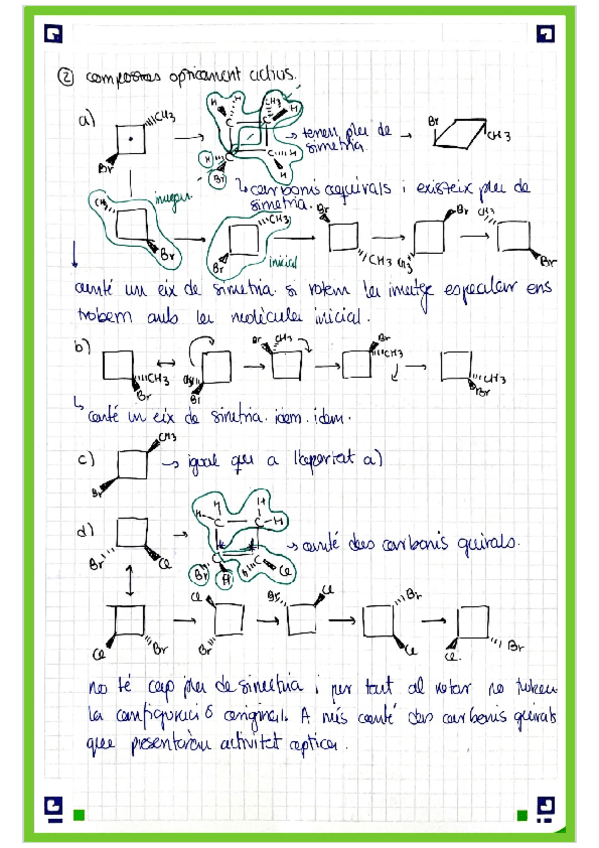 ② compostos opticament actius.
a)
CH3
Br
→ tenen pla de simetria
Br
CH3
H H CH3 H
C C
H C C H
Br H
↳ carbonis aquirals i existeix pla de simetria.
CH3 imatge Br
CH3 Br inicial
Br CH3
Br CH3
CH3 Br
conté un eix de simetria. si rotem la imatge especular ens
trobem amb la molècula inicial.
b)
CH3 Br
CH3 Br
Br CH3
Br CH3
CH3 Br
↳ conté un eix de simetria. idem. idem.
c)
CH3
Br
→ igual que a l'apartat a)
d)
Br Cl
H H H H
C C
C C
Br H H Cl
→ conté dos carbonis quirals.
Cl Br
Cl Br
Br Cl
Br Cl
Cl Br
no té cap pla de simetria i per tant al rotar no trobem
la configuració original. A més conté dos carbonis quirals
que presentaran activitat optica.